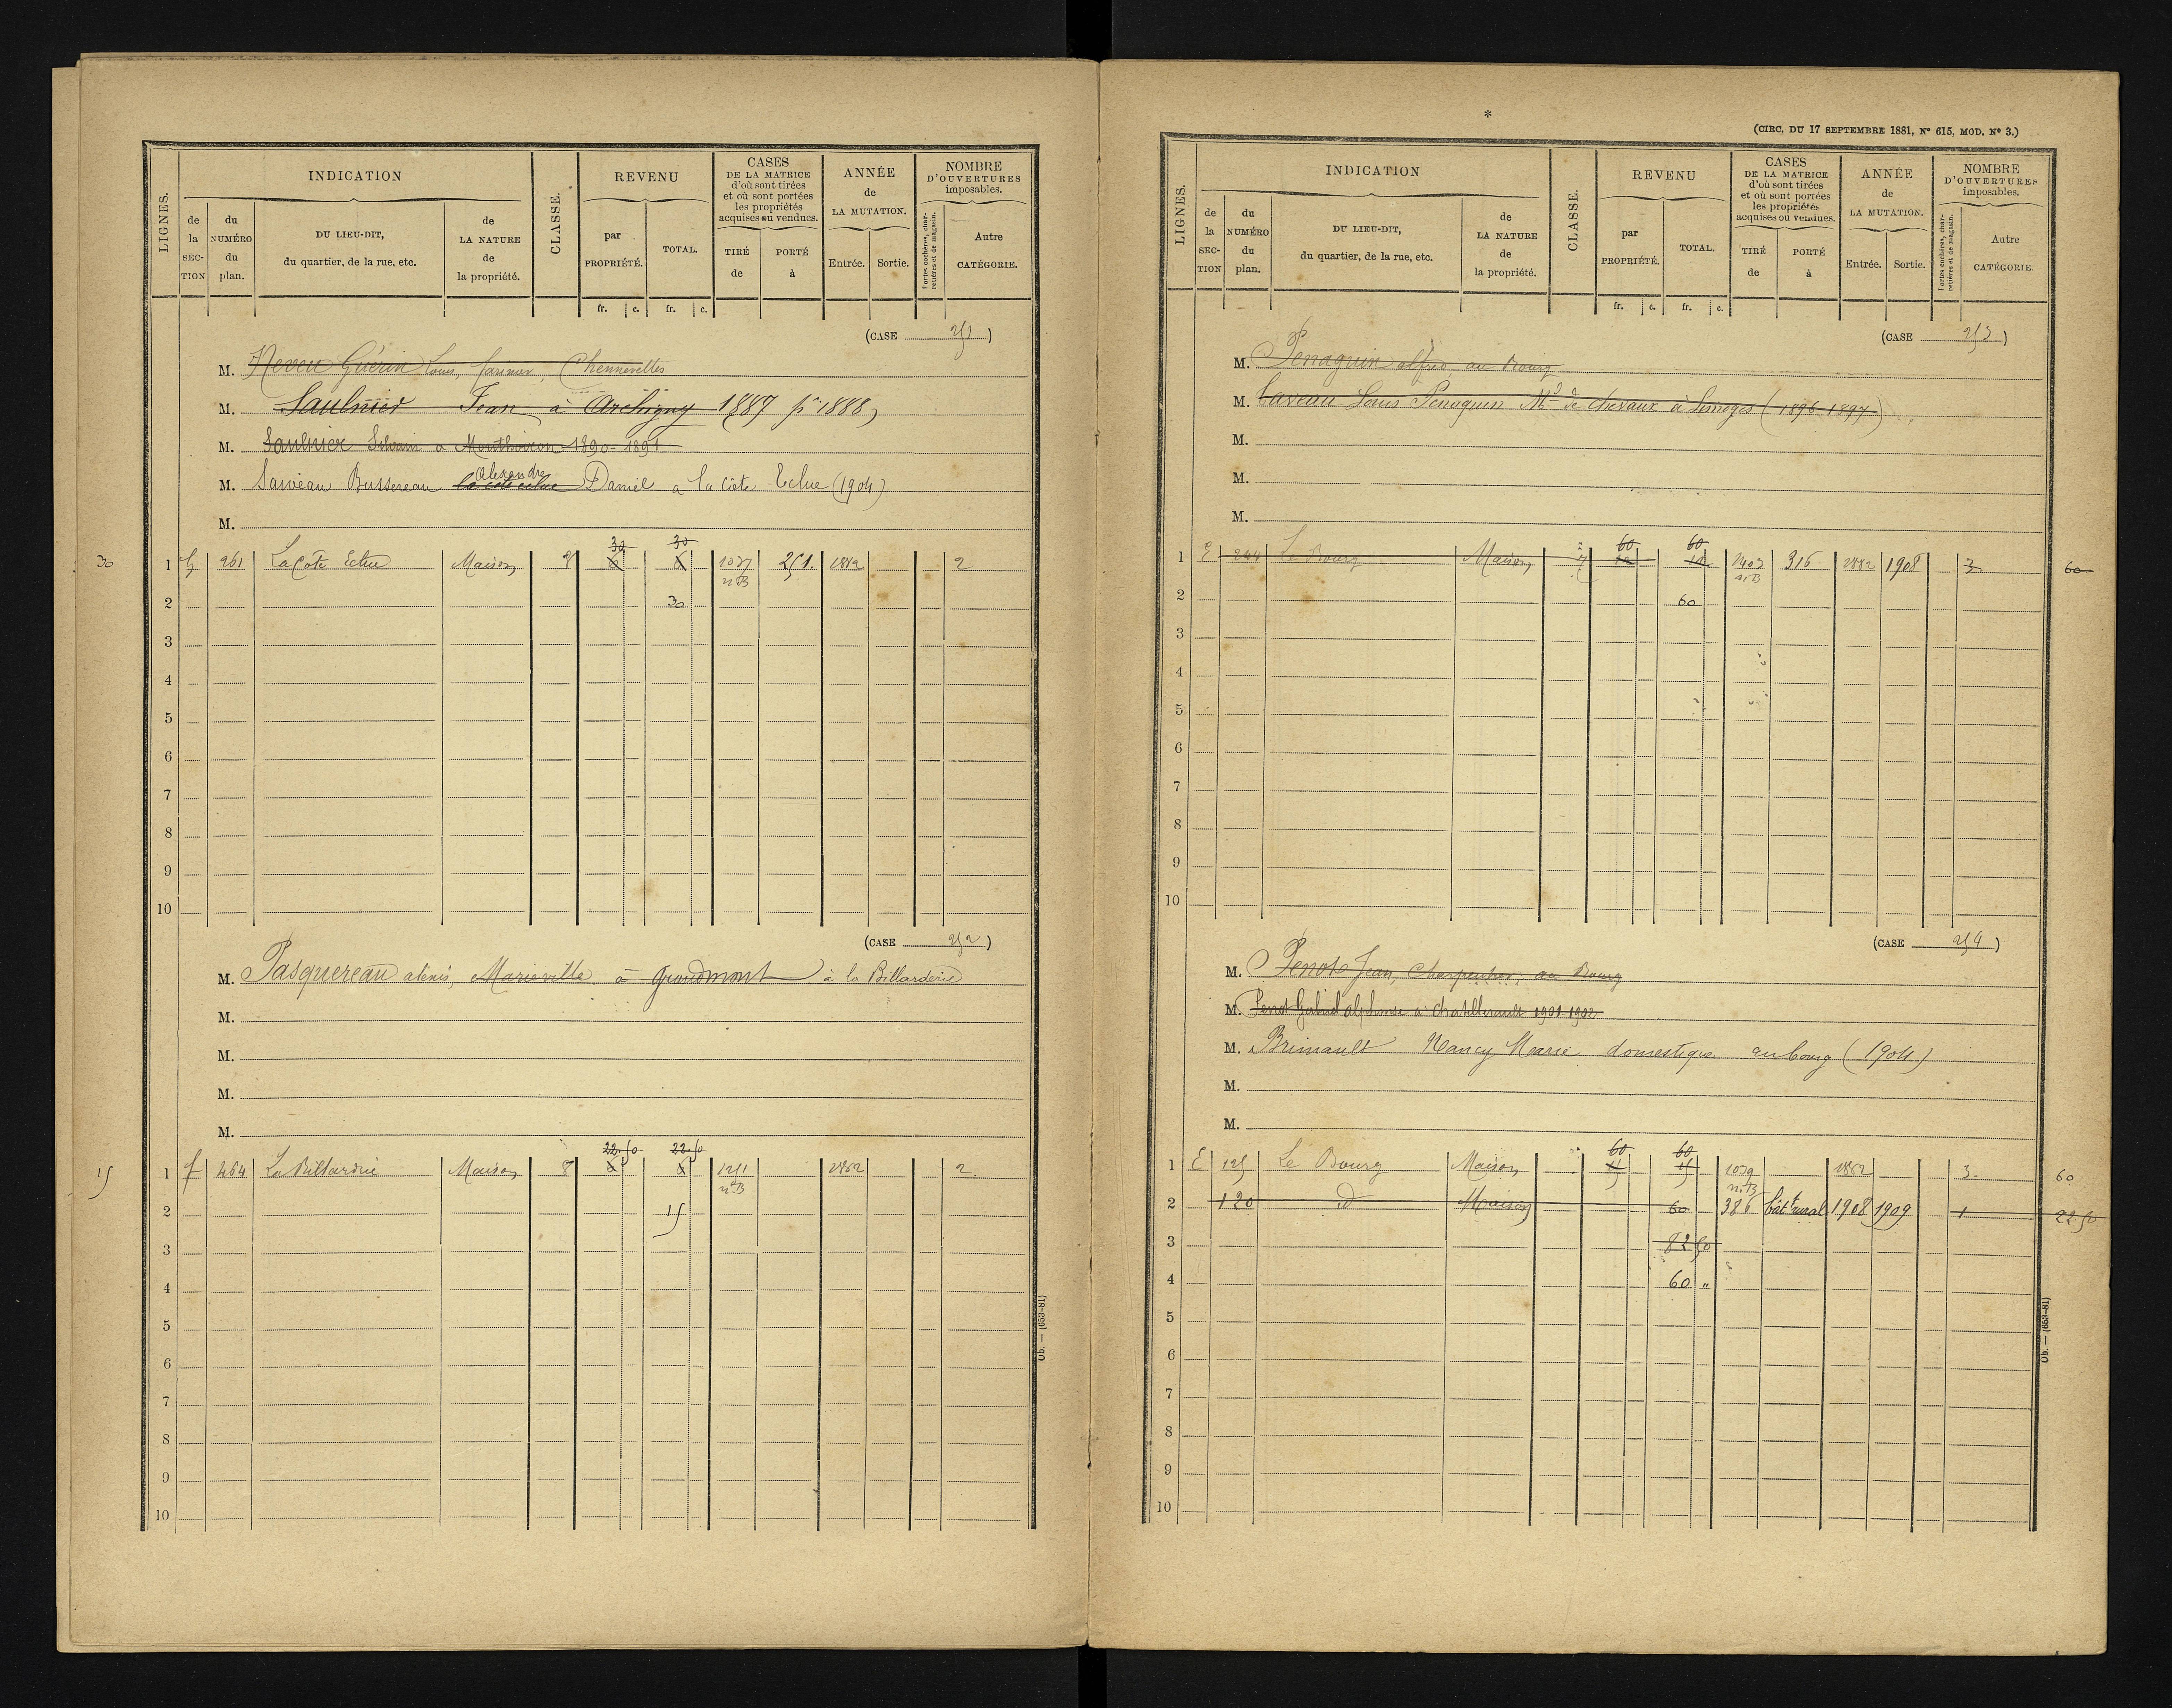 INDICATION
REVENU
CASES
DE LA MATRICE
d'où sont tirées
et où sont portées
les propriétés
acquises ou vendues.
ANNÉE
de
LA MUTATION.
NOMBRE
D'OUVERTURES
imposables.
LIGNES.
de la SEC-TION
du NUMÉRO du plan.
DU LIEU-DIT,
du quartier, de la rue, etc.
de LA NATURE de la propriété.
CLASSE.
par PROPRIÉTÉ.
TOTAL.
TIRÉ de
PORTÉ à
Entrée.
Sortie.
Portes cochères, charretières et de magasin.
Autre CATÉGORIE.
fr. c. fr. c.
(CASE 251)
M. Neveu Guérin Louis, Chennevelles
M. Saulnier Jean à Archigny 1887 pr 1888
M. Saulnier Silvain à Monthoiron 1890-1891
Alexandre
M. Bussereau la cote eclue Daniel a la Côte Eclue (1904)
M.
30 30
30 1 G 261 La Côte Eclue Maison 8 6 6 1037 251. 1882 2
n°B
2 30
3
4
5
6
7
8
9
10
(CASE 252)
M. Pasquereau alexis, à grandmont à la Billarderie
M.
M.
M.
M.
22.50 22.50
15 1 f 464 La Billardrie Maison 8 6 6 1251 1882 2.
n°B
2 15
3
4
5
6
7
8
9
10
Ob. — (653-81)
*
(CIRC. DU 17 SEPTEMBRE 1881, N° 615, MOD. N° 3.)
INDICATION
REVENU
CASES
DE LA MATRICE
d'où sont tirées
et où sont portées
les propriétés
acquises ou vendues.
ANNÉE
de
LA MUTATION.
NOMBRE
D'OUVERTURES
imposables.
LIGNES.
de la SEC-TION
du NUMÉRO du plan.
DU LIEU-DIT,
du quartier, de la rue, etc.
de LA NATURE de la propriété.
CLASSE.
par PROPRIÉTÉ.
TOTAL.
TIRÉ de
PORTÉ à
Entrée.
Sortie.
Portes cochères, charretières et de magasin.
Autre CATÉGORIE.
fr. c. fr. c.
(CASE 253)
M. Penaguin alfred, au Bourg
M. Louis Penaguin Md de chevaux à Limoges (1896-1897)
M.
M.
M.
60 60
1 E 244 Le Bourg Maison 7 1403 316 1882 1908 3 60
n°B
2 60
3
4
5
6
7
8
9
10
(CASE 254)
M. Penot Jean, Charpentier, au Bourg
M. Penot Gabriel alphonse à Chatellerault 1901-1902
M. Brunault Nancy Marie domestique au bourg (1904)
M.
M.
60 60
1 E 125 Le Bourg Maison 15 15 1079 1882 3. 60
n°B
2 120 d Maison 60 386 bâtt rural 1908 1909 1 22 50
3 82 50
4 60 "
5
6
7
8
9
10
Ob. — (653-81)